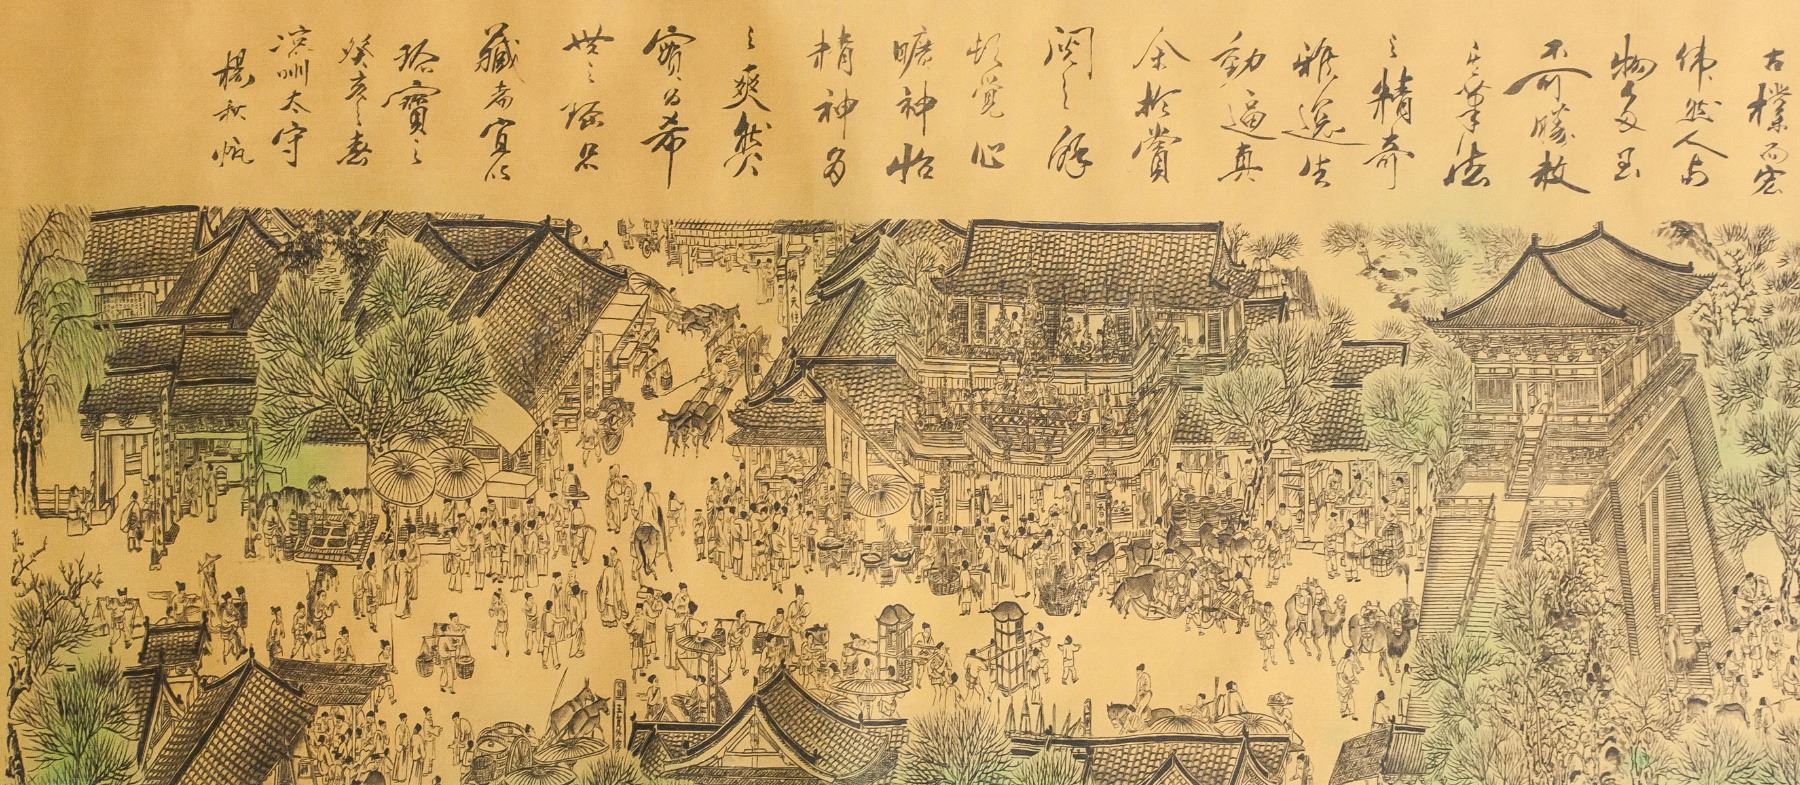 古樸而宏
偉然人与
物多至
不可勝数
其筆法
之精奇
雅逸生
動逼真
余於賞
閱之餘
頓覺心
曠神怡
精神为
之爽然
實为希
世之珍品
藏者宜以
珍寶之
癸亥之春
涼州太守
楊秋帆